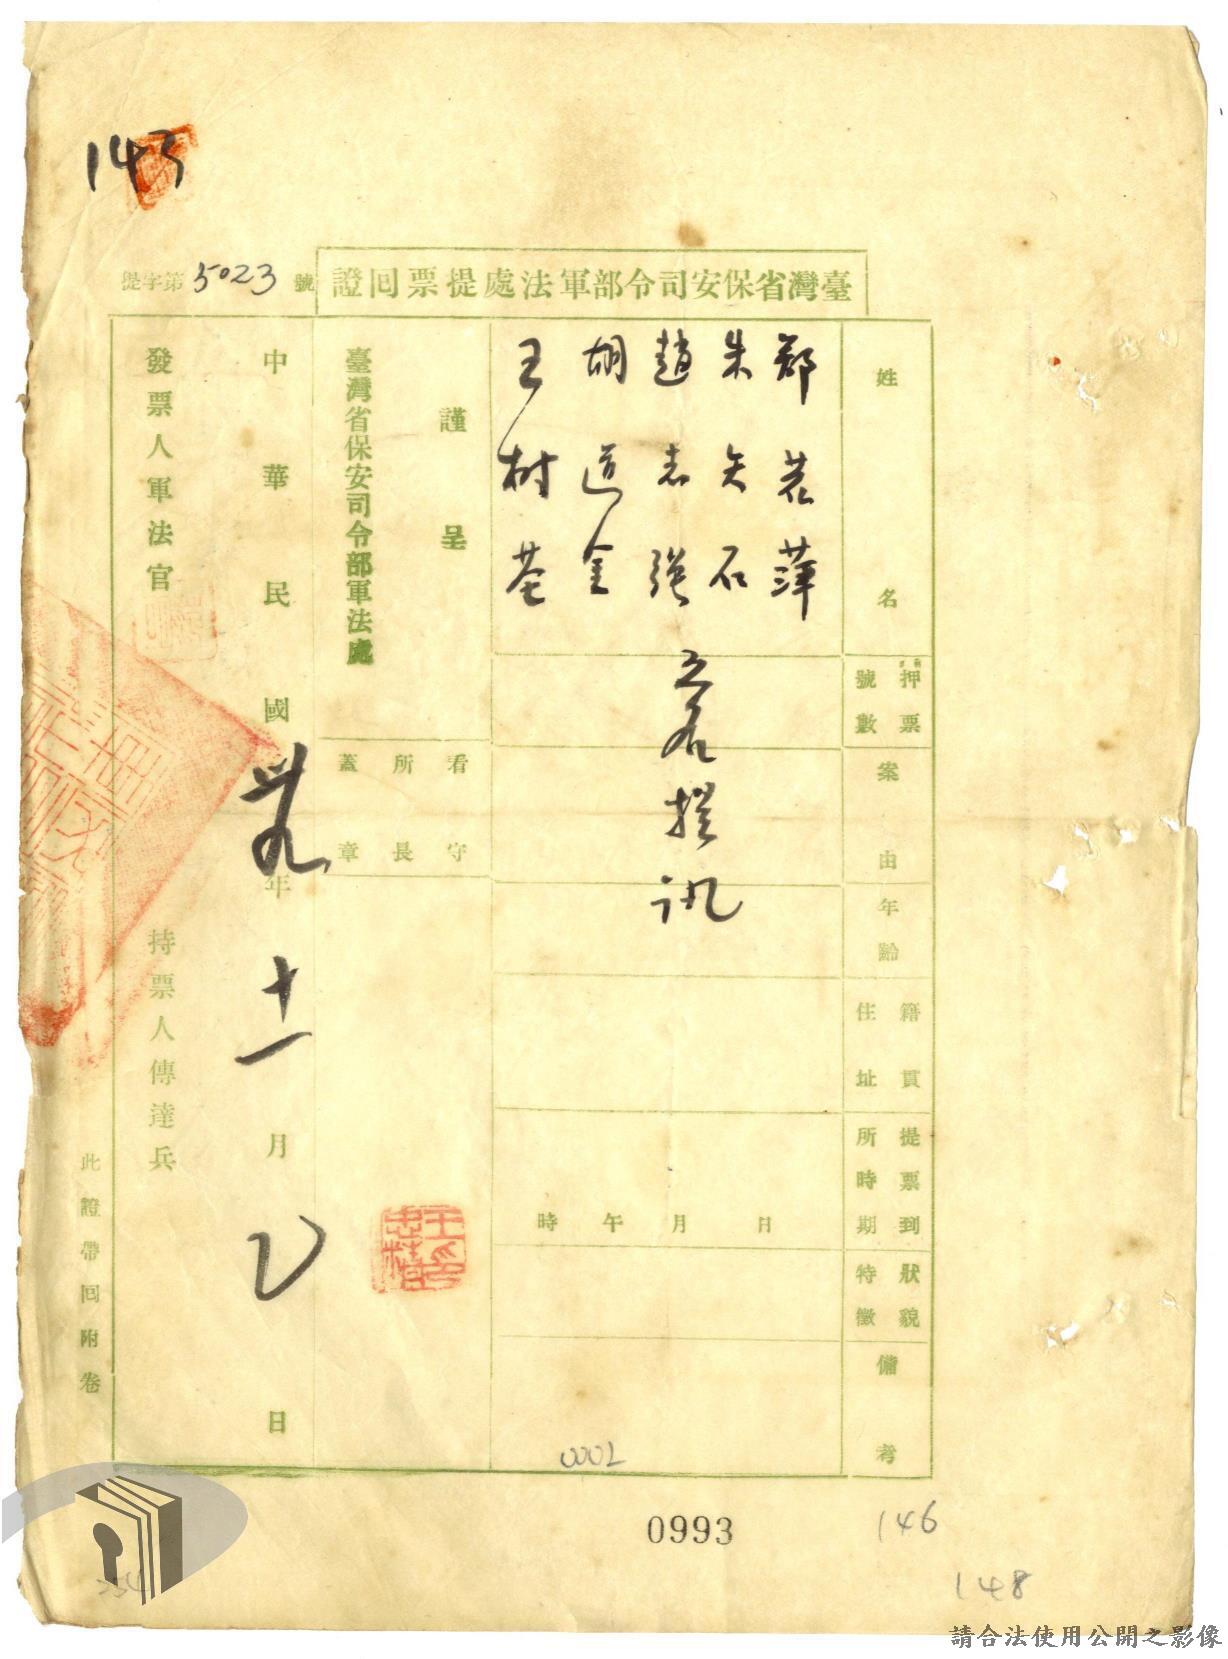 143
臺灣省保安司令部軍法處提票回證
提字第5023號
姓名
押票號數
案由
年齡
籍貫住址
提票到所時期
狀貌特徵
備考
鄭
朱矢石
趙志強
胡道金
王树荃
五名提訊
日月午時
謹呈
臺灣省保安司令部軍法處
看守所長蓋章
王忠楨印
中華民國卅九年十一月2日
發票人軍法官
持票人傳達兵
此證帶回附卷
0002
0993
146
148
請合法使用公開之影像